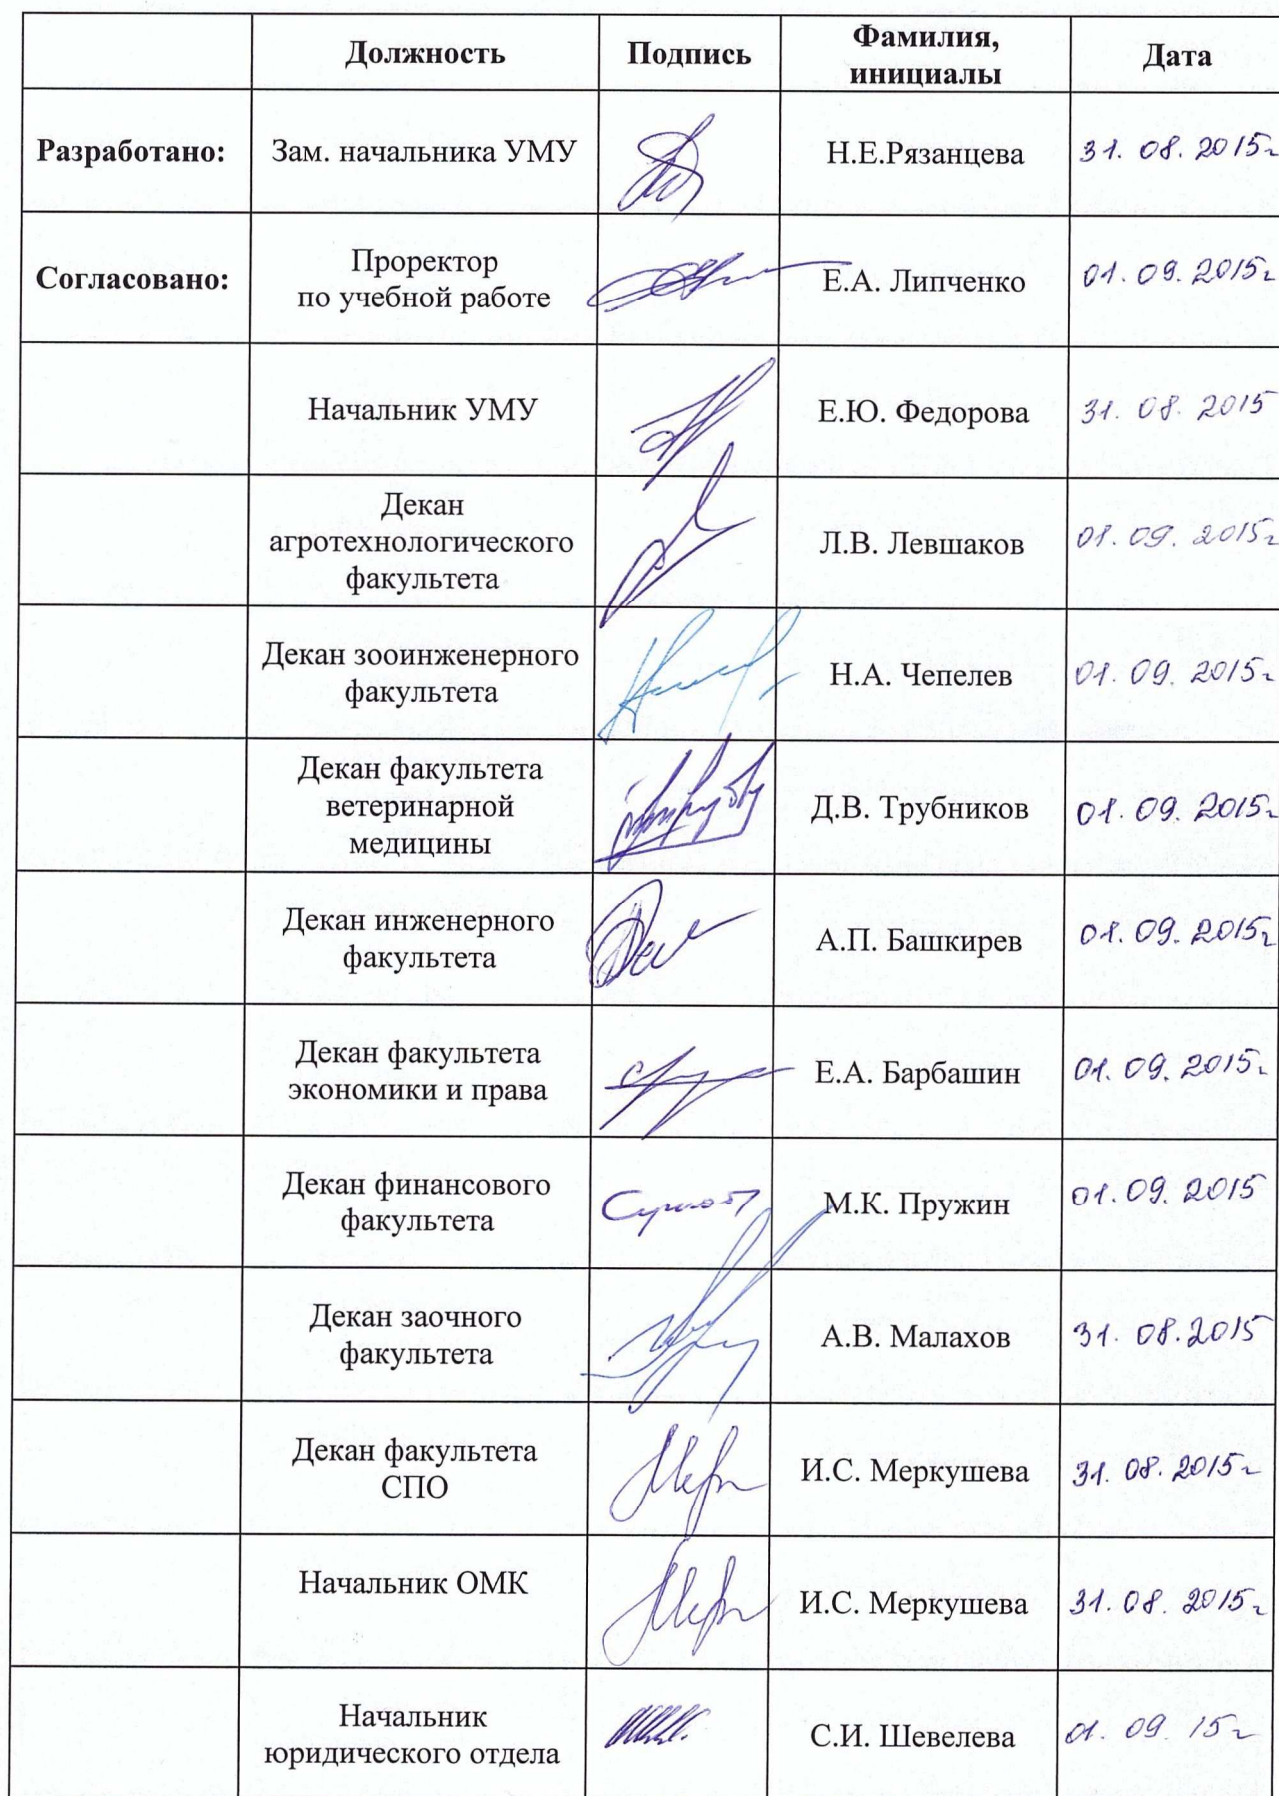 Должность Подпись Фамилия, инициалы Дата
Разработано: Зам. начальника УМУ Н.Е.Рязанцева 31.08.2015г
Согласовано: Проректор
по учебной работе Е.А. Липченко 01.09.2015г
Начальник УМУ Е.Ю. Федорова 31.08.2015
Декан
агротехнологического Л.В. Левшаков 01.09.2015г
факультета
Декан зооинженерного
факультета Н.А. Чепелев 01.09.2015г
Декан факультета
ветеринарной Д.В. Трубников 01.09.2015г
медицины
Декан инженерного
факультета А.П. Башкирев 01.09.2015г
Декан факультета
экономики и права Е.А. Барбашин 01.09.2015г
Декан финансового
факультета М.К. Пружин 01.09.2015
Декан заочного
факультета А.В. Малахов 31.08.2015
Декан факультета
СПО И.С. Меркушева 31.08.2015г
Начальник ОМК И.С. Меркушева 31.08.2015г
Начальник
юридического отдела С.И. Шевелева 01.09.15г